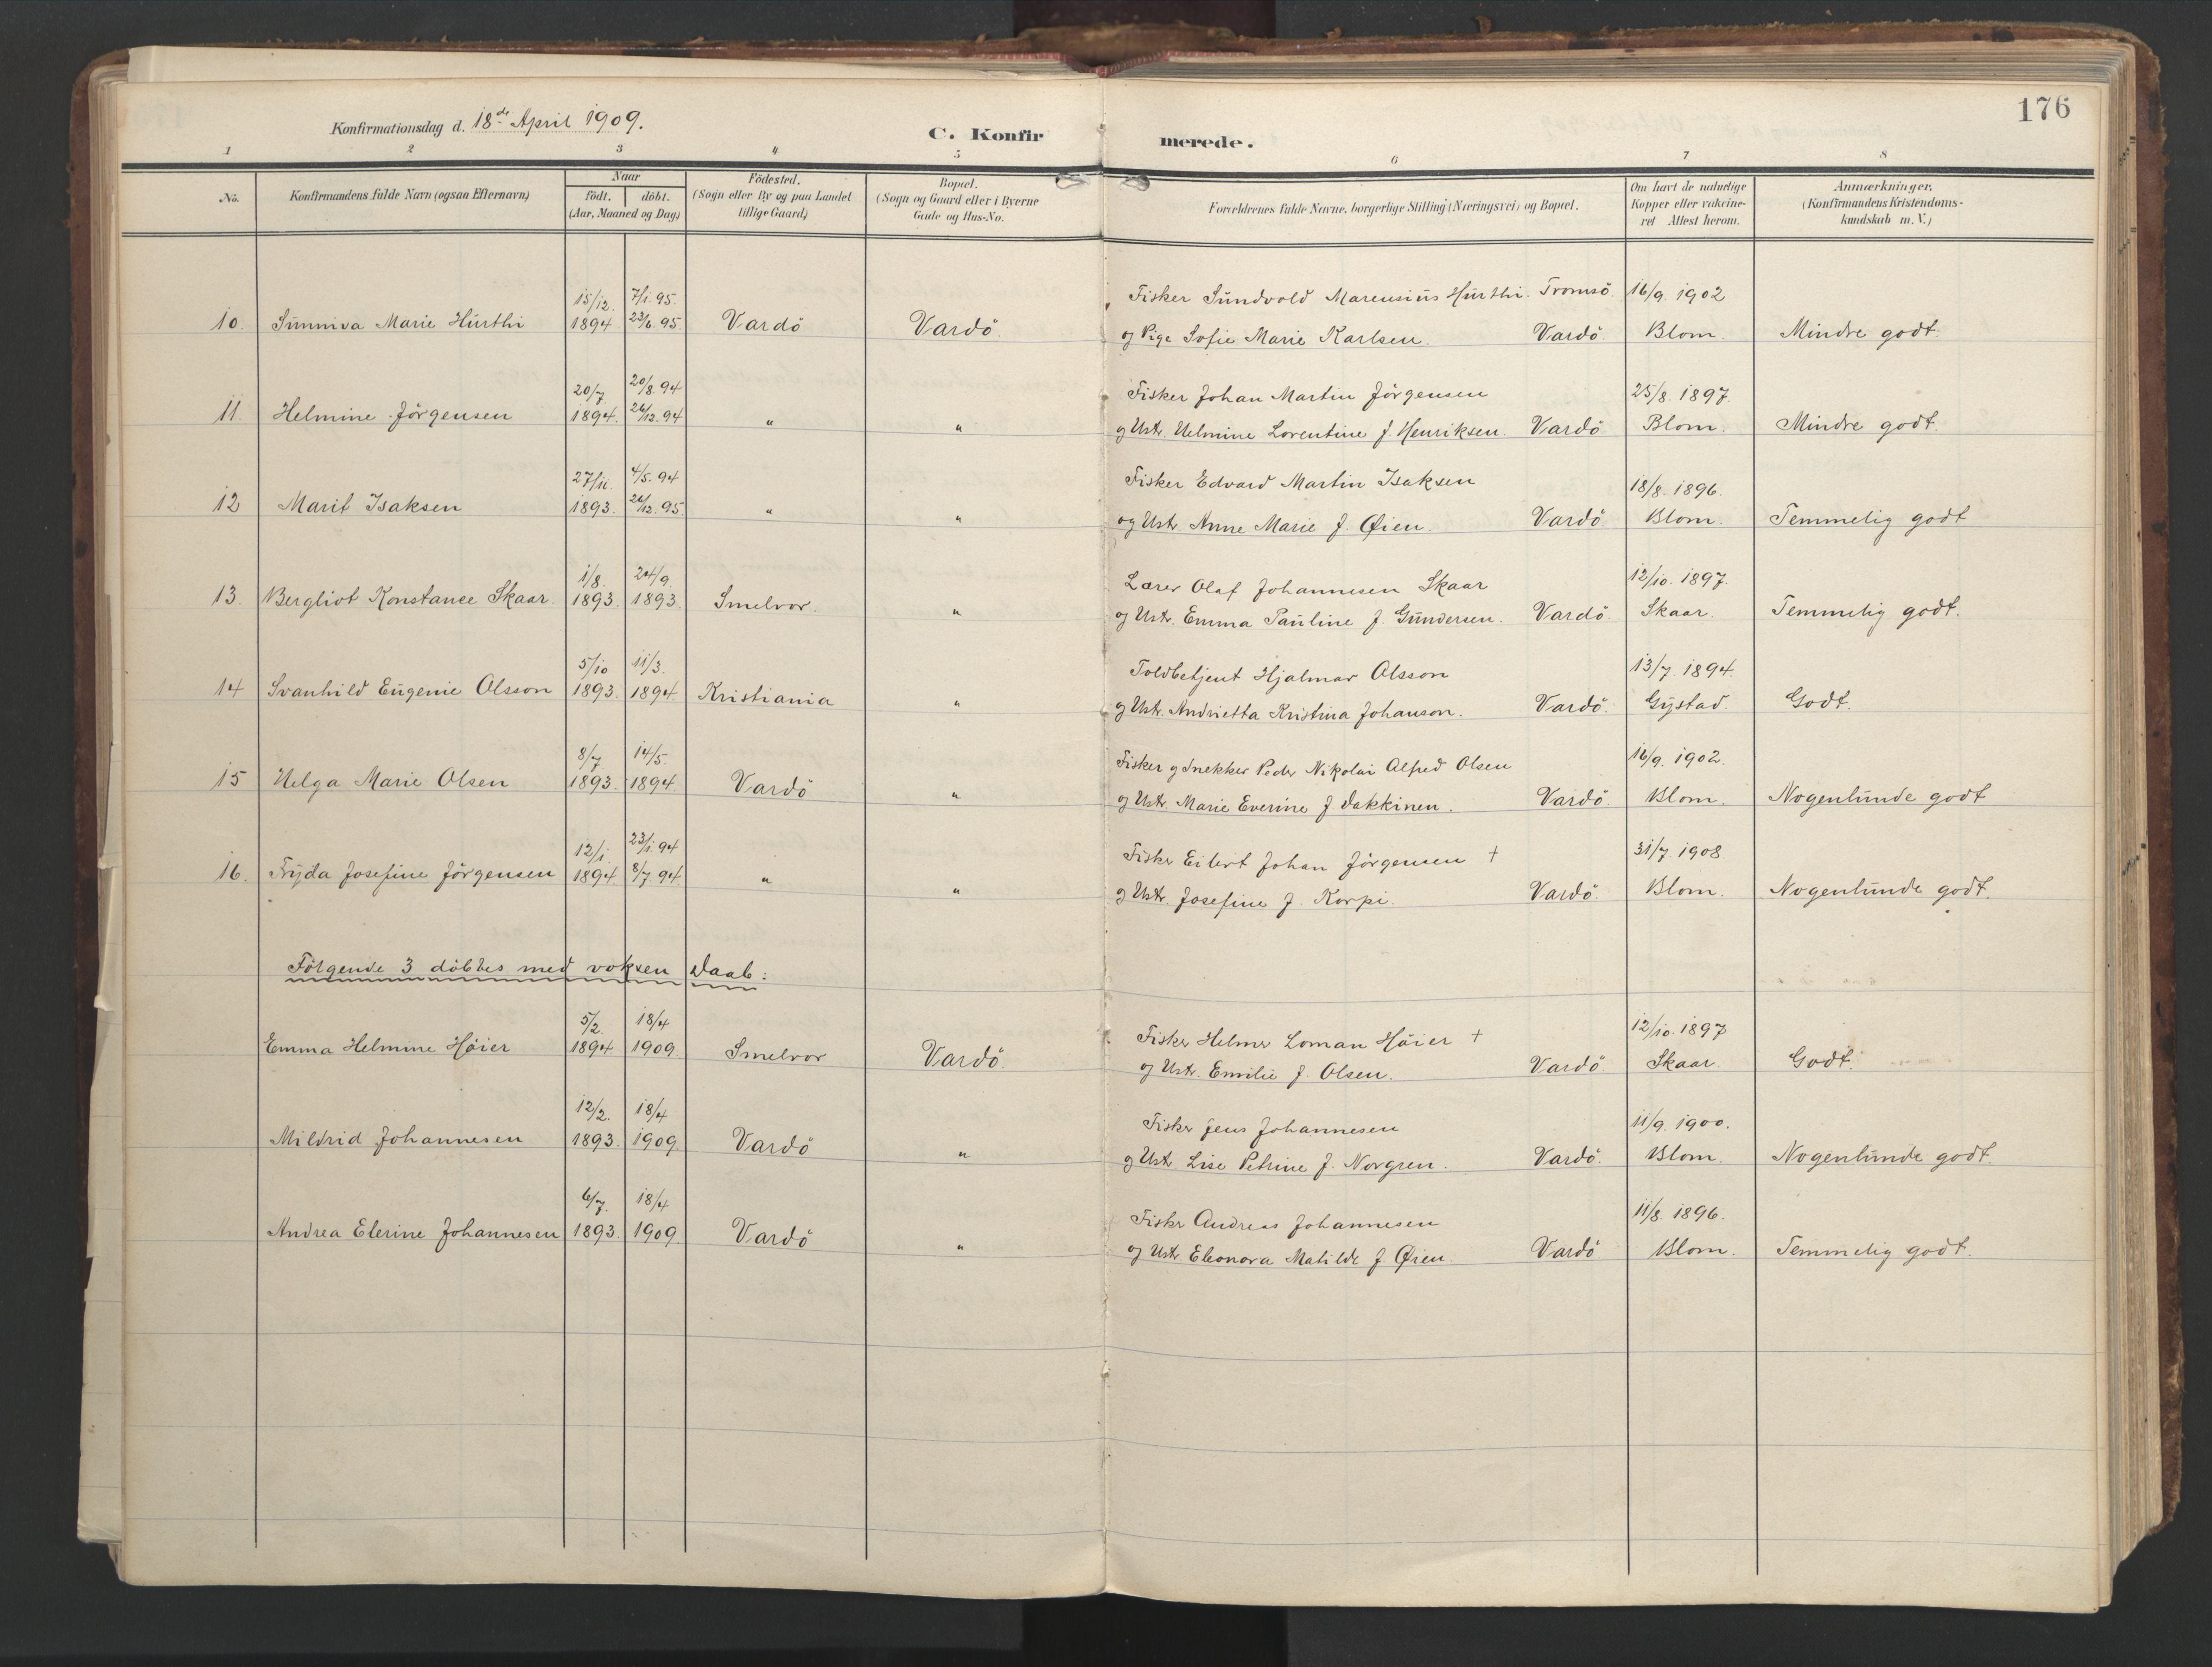 176
Konfirmationsdag d. 18de April 1909.
C. Konfir merede.
1 2 3 4 5 6 7 8
No.
Konfirmandens fulde Navn (ogsaa Efternavn)
Naar
født. døbt.
(Aar, Maaned og Dag)
Fødested.
(Sogn eller By og paa Landet
tillige Gaard)
Bopæl.
(Sogn og Gaard eller i Byerne
Gade og Hus-No.
Forældrenes fulde Navne, borgerlige Stilling (Næringsvei) og Bopæl.
Om havt de naturlige
Kopper eller vakcine-
ret Attest herom.
Anmærkninger.
(Konfirmandens Kristendoms-
kundskab m. V.)
15/12. 7/1. 95. Fisker Sundvold Marensius Hurthi. Tromsö. 16/9. 1902
10. Sunniva Marie Hurthi 1894 23/6. 95 Vardö Vardö. og Pige Sofie Marie Karlsen. Vardö. Blom. Mindre godt.
20/7. 20/8. 94 Fisker Johan Martin Jörgensen 25/8. 1897.
11. Helmine Jörgensen 1894. 26/12. 94 " " og Ustr. Helmine Lorentine f. Henriksen. Vardö Blom. Mindre godt.
27/11. 4/5. 94 Fisker Edvard Martin Isaksen 18/8. 1896.
12 Marit Isaksen 1893. 26/12. 95 " " og Ustr. Anne Marie f. Øien. Vardö Blom. Temmelig godt
1/8. 24/9. Lærer Olaf Johannesen Skaar 12/10. 1897.
13. Bergliot Konstance Skaar. 1893. 1893. Smelror. " og Ustr. Emma Pauline f. Gundersen. Vardö. Skaar. Temmelig godt.
5/10 11/3. Toldbetjent Hjalmar Olsson 13/7. 1894.
14 Svanhild Eugenie Olsson 1893. 1894. Kristiania " og Ustr. Andrietta Kristina Johanson. Vardö. Gystad. Godt.
8/7. 14/5. Fisker og Snekker Peder Nikolai Alfred Olsen 16/9. 1902.
15 Helga Marie Olsen 1893. 1894. Vardö " og Ustr. Marie Everine f. Dakkinen. Vardö. Blom. Nogenlunde godt
12/1. 23/1. 94 Fisker Eilert Johan Jörgensen + 31/7. 1908
16. Fryda Josefine Jörgensen 1894 8/7. 94. " " og Ustr. Josefine f. Korpi. Vardö. Blom. Nogenlunde godt.
Fölgende 3 döbtes med voksen Daab:
5/2. 18/4 Fisker Helmer Loman Höier + 12/10. 1897
Emma Helmine Höier 1894 1909. Smelror Vardö. og Ustr. Emilie f. Olsen. Vardö Skaar. Godt.
12/2. 18/4 Fisker Jens Johannesen 11/9. 1900.
Mildrid Johannesen 1893. 1909 Vardö " og Ustr. Lise Petrine f. Norgren. Vardö. Blom. Nogenlunde godt
6/7. 18/4 Fisker Andreas Johannesen 11/8. 1896.
Andrea Elerine Johannesen 1893. 1909. Vardö " og Ustr Eleonora Matilde f Øien. Vardö Blom. Temmelig godt.